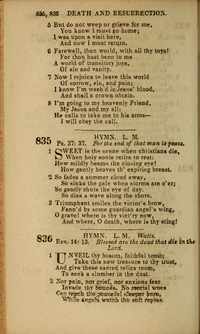 835, 836 DEATH AND RESURRECTION.
5 But do not weep or grieve for me,
You know I must go home;
I was upon a visit here,
And now I must return.
6 Farewell, then world, with all thy toys!
For thou hast been to me
A world of transitory joys,
Of sin and vanity.
7 Now I rejoice to leave this world
Of sorrow, sin, and pain;
I know I'm wash'd in Jesus' blood,
And shall a crown obtain.
8 I'm going to my heavenly Friend,
My Jesus and my all;
He calls to take me to his arms—
I will obey the call.
835 HYMN. L. M.
Ps. 37: 37. For the end of that man is peace.
1 SWEET is the scene when christians die,
When holy souls retire to rest:
How mildly beams the closing eye!
How gently heaves th' expiring breast.
2 So fades a summer cloud away,
So sinks the gale when storms are o'er;
So gently shuts the eye of day,
So dies a wave along the shore.
3 Triumphant smiles the victor's brow,
Fann'd by some guardian angel's wing,
O grave! where is thy vict'ry now,
And where, O death, where is thy sting!
836 HYMN. L. M. Watts.
Rev. 14: 13. Blessed are the dead that die in the
Lord.
1 UNVEIL thy bosom, faithful tomb;
Take this new treasure to thy trust,
And give these sacred relics room,
To seek a slumber in the dust.
2 Nor pain, nor grief, nor anxious fear
Invade thy bounds. No mortal woes
Can reach the peaceful sleeper here,
While angels watch the soft repose.